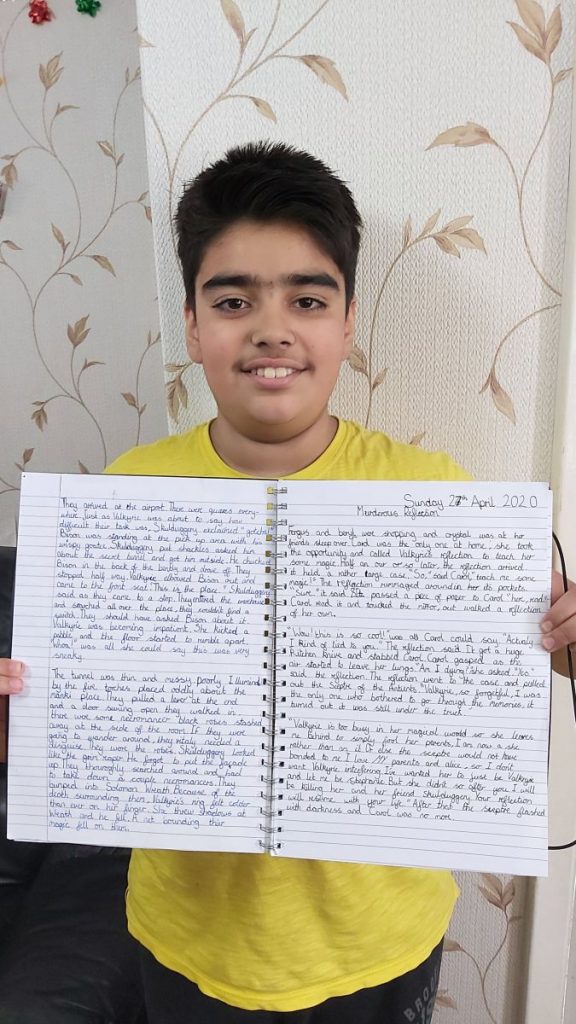 They arrived at the airport. There were queues every-
where. Just as Valkyrie was about to say how
difficult their task was, Skulduggery exclaimed "gotcha".
Bison was standing at the pick up area with a
wispy goatee. Skulduggery put shackles asked him
about the secret tunnel and got him outside. He chucked
Bison in the back of the Bentley and drove off. They
stopped half way. Valkyrie allowed Bison out and
came to the front seat. "This is the place." Skulduggery
said as they came to a stop. They entered the warehouse
and searched all over the place, they couldn't find a
switch. They should have asked Bison about it.
Valkyrie was becoming impatient. She kicked a
pebble and the floor started to rumble apart.
Whoa! was all she could say this was very
sneaky.
The tunnel was thin and messy poorly illumind
by the fire torches placed oddly about the
manky place. They pulled a lever at the end
and a door swung open, they walked in
there were some necromancer black robes stashed
away at the side of the room. If they were
going to wander around, they'd need a
disguise. They wore the robes. Skulduggery looked
like the grim reaper. He forgot to put the façade
up. They thoroughly searched around and had
to take down a couple necromancers. They
bumped into Solomon Wreath. Because of the
death surrounding them Valkyrie's ring felt colder
than ever on her finger. She threw shadows at
Wreath and he fell. A net bounding their
magic fell on them.
Sunday 27th April 2020
Murderous Reflection
Fergus and Beryl were shopping and crystal was at her
friends sleep over. Carol was the only one at home, she took
the opportunity and called Valkyrie's reflection to teach her
some magic. Half an our or so later, the reflection arrived
it held a rather large case. So," said Carol, "teach me some
magic." The reflection rummaged around in its pockets.
"Sure." it said It passed a piece of paper to Carol "here, read it"
Carol read it and touched the mirror, out walked a reflection
of her own.
"Wow! this is so cool!" was all Carol could say. "Actually
I Kind of lied to you." The reflection said. It got a huge
Kitchen Knive and stabbed Carol. Carol gasped as the
air started to leave her lungs. "Am I dying?" she asked "Yes"
said the reflection. The reflection went to the case and pulled
out the Septre of the Ancients. "Valkyrie, so forgetful, I was
the only one who bothered to go through the memories, it
turned out it was still under the truck.
"Valkyrie is too busy in her magical world so she leaves
me behind to simply fool her parents. I am now a she
rather than an it or else the sceptre would not have
bonded to me. I love MY parents and alice so I don't
want Valkyrie interfering. I've wanted her to just be Valkyrie
and let me be Stephanie. But she didnt so after you I will
be killing her and her friend Skulduggery. Your reflection
will resume with your life." After that the sceptre flashed
with darkness and Carol was no more.